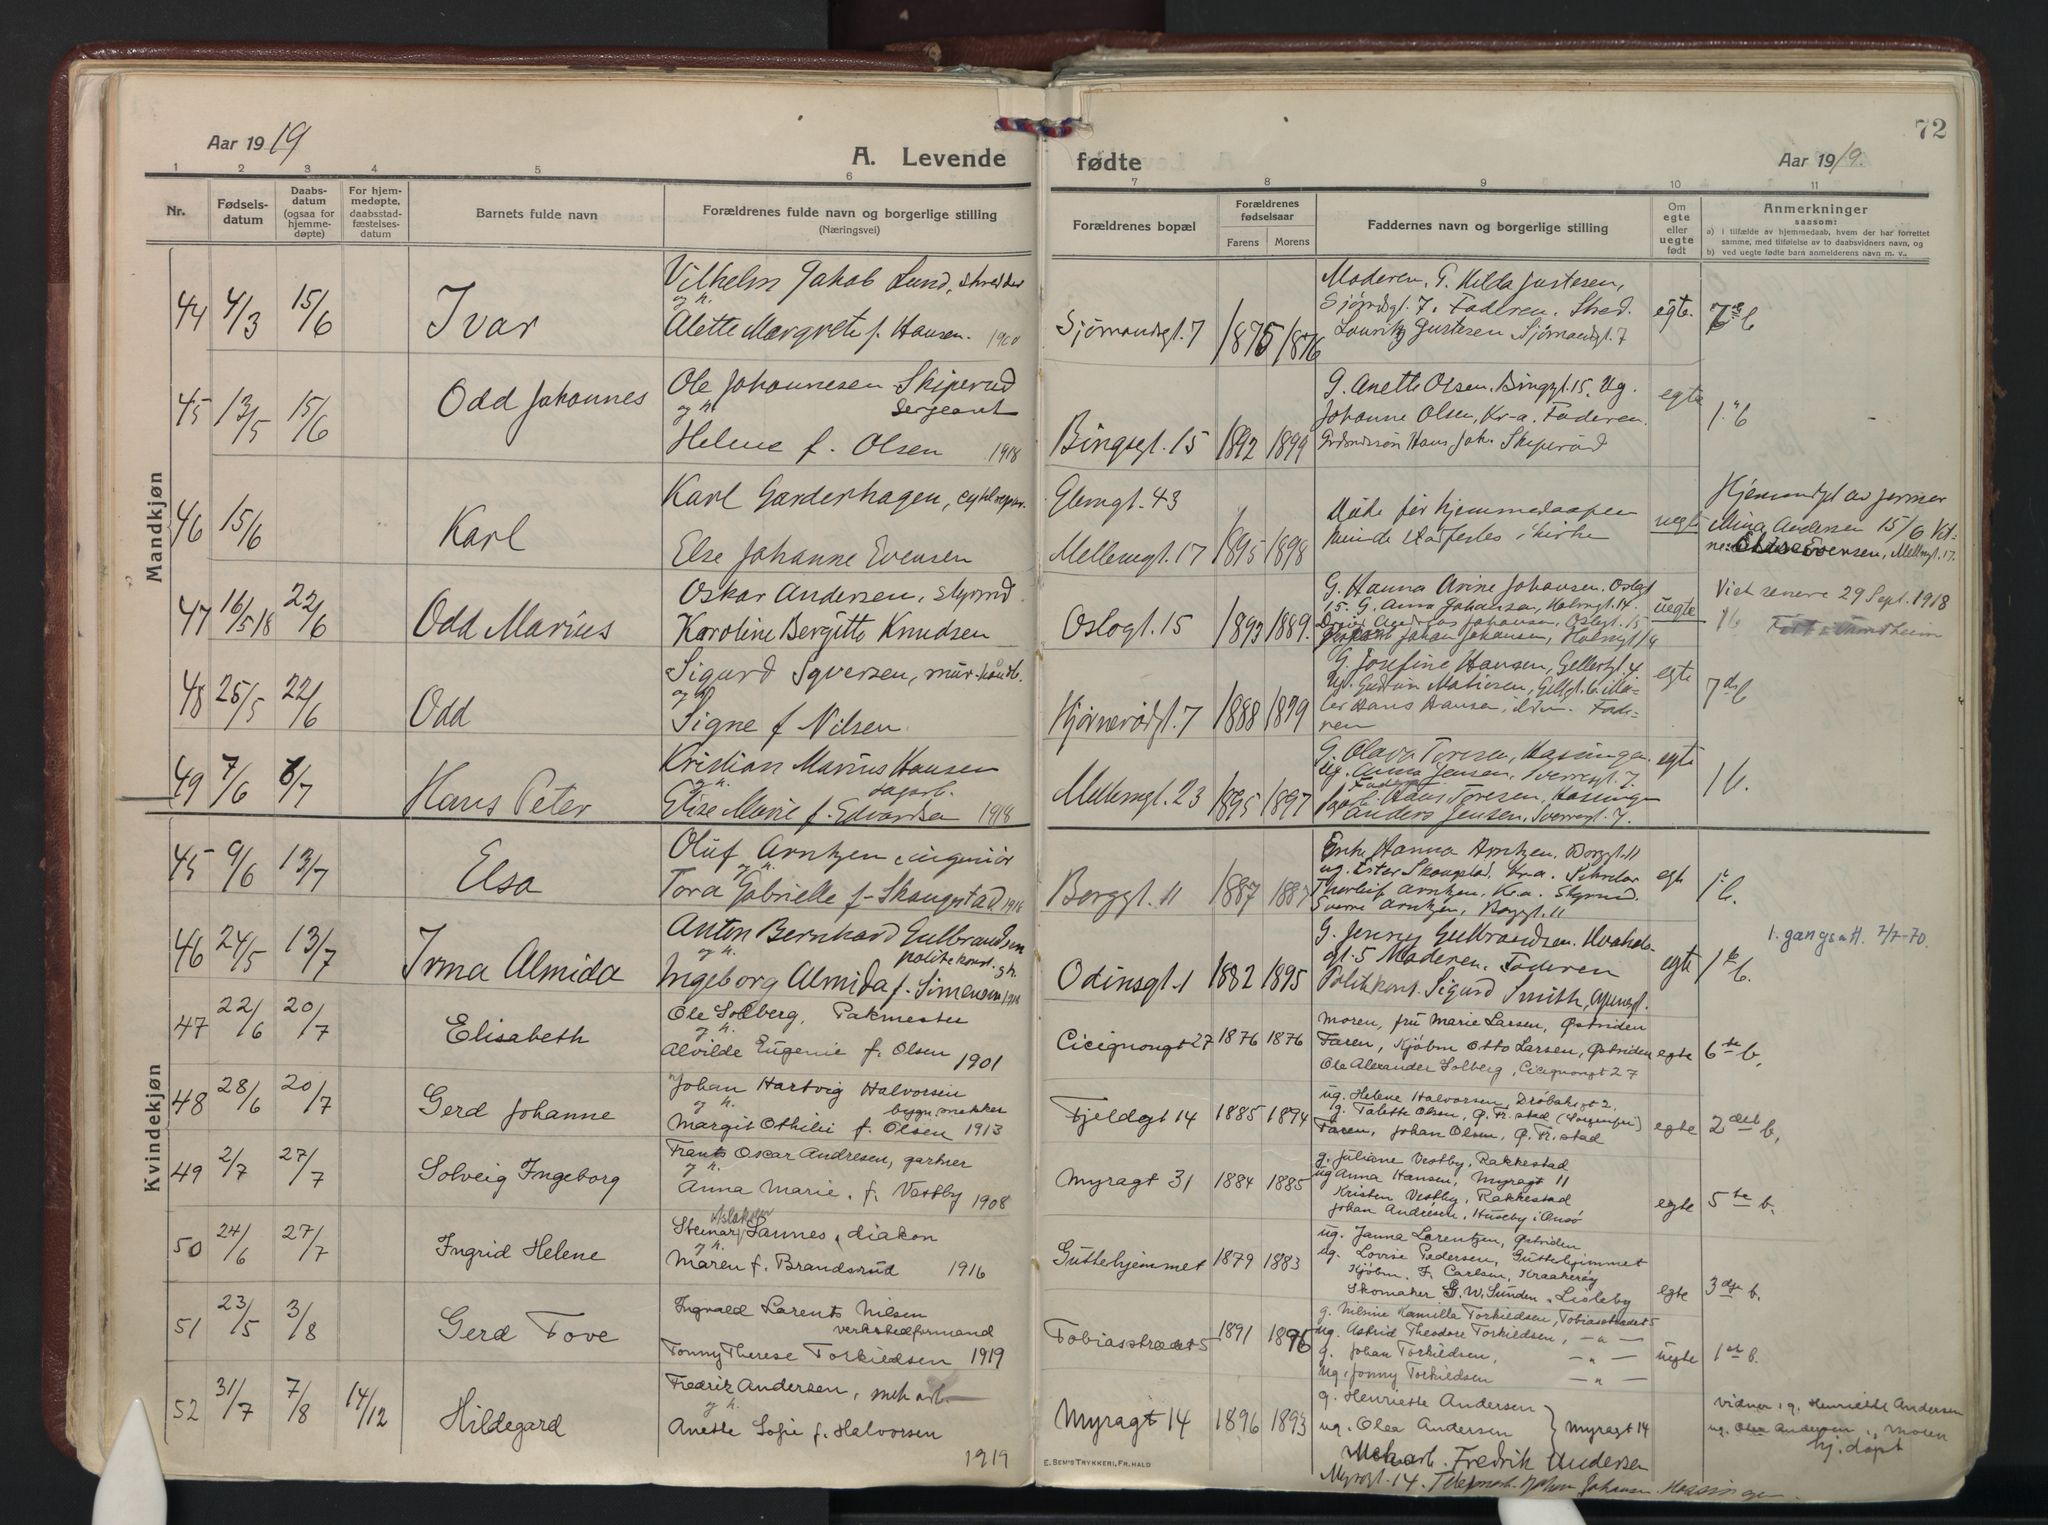 72
Aar 1919
A. Levende fødte
Aar 1919.
1 2 3 4 5 6 7 8 9 10 11
Nr.
Fødselsdatum
Daabsdatum (ogsaa for hjemmedøpte)
For hjemmedøpte, daabsstadfæstelsesdatum
Barnets fulde navn
Forældrenes fulde navn og borgerlige stilling
(Næringsvei)
Forældrenes bopæl
Forældrenes fødselsaar
Farens Morens
Faddernes navn og borgerlige stilling
Om egte eller uegte født
Anmerkninger
saasom:
a) i tilfælde av hjemmedaab, hvem der har forrettet samme, med tilføielse av to daabsvidners navn, og
b) ved uegte fødte barn anmelderens navn m. v.
Mandkjøn
44 4/3 15/6 Ivar
Vilhelm Jakob Lund, skrædder
og h.
Alette Margrete f. Hansen. 1900
Sjømandsgt. 7 1875 1876
Moderen, G. Hilda Justesen,
Sjømdsgt. 7. Faderen. Skræd.
Lauritz Gustesen Sjømandsgt. 7
egte. 7de b
45 13/5 15/6 Odd Johannes
Ole Johannesen Skiperød
og h. Sergeant
Helene f. Olsen 1918
Bingsgt. 15 1892 1899
G. Anette Olsen. Bingsgt. 15. Ug.
Johanne Olsen, Kr-a. Faderen.
Hans Joh. Skiperød
egte 1. b
46 15/6 Karl
Karl Garderhagen, cykelrepar.
Else Johanne Evensen
Glemgt. 43
Mellemgt. 17 1895 1898
Døde før hjemmedaapen
kunde stadfestes i kirke
uegte
Hjemmedøpt av jormor
Mina Andersen 15/6 Vid-
ne: Else Evensen, Mellemgt. 17.
47 16/5 18 22/6 Odd Marius
Oskar Andersen, styrmd
Karoline Bergitte Knudsen
Oslogt. 15 1893 1889.
G. Hanna Arine Johansen. Oslogt
15. G. Anna Johansen, Holmegt. 14.
Johansen, Oslogt. 15
Johan Johansen, Holmegt 14
uegte
Viet senere 29 Sept. 1918
1 b
48 25/5 22/6 Odd
Sigurd Syversen, mur-handtl.
og h.
Signe f. Nilsen
Hjørnerødgt. 7 1888 1899
G. Josefine Hansen, Gellertgt. 4
Ug. Gudrun Matiesen, Gellgt. 6 Ma-
ler Hans Hansen, Fade-
ren
egte 7de b
49 7/6 6/7 Hans Peter
Kristian Marius Hansen
og h. sagarb.
Elise Marie f. Edvardsen 1918
Mellemgt. 23 1895 1897
G. Olava Toresen, Hassingen.
Ug. Anna Jensen, Sverresgt. 7.
Hans Toresen, Hassingen
Anders Jensen, Sverresgt. 7.
egte 1 b.
Kvindekjøn
45 9/6 13/7 Elsa
Oluf Arntzen, ingeniør
og h.
Tora Gabrielle f. Skaugstad 1916
Borggt. 11 1887 1887
Enke Hanna Arntzen. Borggt. 11
ug. Ester Skaugstad, Kr.a.
Thorleif Arntzen, Kr.a. Styrmd.
Sverre Arntzen, Borggt. 11
egte 1 b.
46 24/5 13/7 Irma Almida
Anton Bernhard Gulbrandsen
og h. politikonst.
Ingeborg Almida f. Simensen
Odinsgt. 1 1882 1895
G. Jenny Gulbrandsen.
gt. 5 Moderen. Faderen
Politikonst. Sigurd Smith,
egte 1te b.
1. gangs att. 7/7-70.
47 22/6 20/7 Elisabeth
Ole Solberg, Pakmester
og h.
Alvilde Eugenie f. Olsen 1901
Cicignongt 27 1876 1876
Moren, fru Marie Larsen, Østsiden
Faren, Kjøbm Otto Larsen, Østsiden
Ole Alexander Solberg, Cicignongt 27
egte 6te b.
48 28/6 20/7 Gerd Johanne
Johan Hartvig Halvorsen
og h. bygn. snekker
Margit Othilie f. Olsen 1913
Fjeldgt 14 1885 1894
ug. Helene Halvorsen, Drøbaksgt 2.
g. Talette Olsen, G. Fr. stad
Faren, Johan Olsen, G. Fr. stad
egte 2det b.
49 2/7 27/7 Solveig Ingeborg
Frants Oscar Andresen, gartner
og h.
Anna Marie, f. Vestby 1908
Myragt 31 1884 1885
g. Juliane Vestby, Rakkestad
ug Anna Hansen, Myragt 11
Kristen Vestby, Rakkestad
Johan Andresen, Huseby i Onsø
egte 5te b.
50 24/6 27/7 Ingrid Helene
Aslaksen
Steinar Sannes, diakon
og h.
Maren f. Brandsrud 1916
Guttehjemmet 1879 1883
ug. Janna Lorentzen, Østsiden
ug. Lovise Pedersen, Guttehjemmet
Kjøbm. F. Carlsen, Kraakerøy
Skomaker G. W. Sunden, Lisleby
egte 3dje b.
51 23/5 3/8 Gerd Tove
Ingvald Larents Nilsen
verkstedformand
Tonny Therese Torkildsen 1919
Tobiasstrædet 5 1891 1896
g. Nilsine Kamilla Torkildsen, Tobiasstrædet 5
ug. Astrid Theodore Torkildsen, — " —
g. Johan Torkildsen, — " —
ug. Jonny Torkildsen — " —
uegte 1ste b.
52 31/7 7/8 14/12 Hildegard
Fredrik Andersen, mek arb.
og h.
Anette Sofie f. Halvorsen
1919
Myragt 14 1896 1893
g. Henriette Andersen
ug. Olea Andersen } Myragt 14
Mek arb. Fredrik Andersen
Myragt. 14. Johan Johansen. Hassingen.
vidner: g. Henriette Andersen
ug. Olea Andersen, moren
hj. døpt
E. SEM'S TRYKKERI, FR.HALD